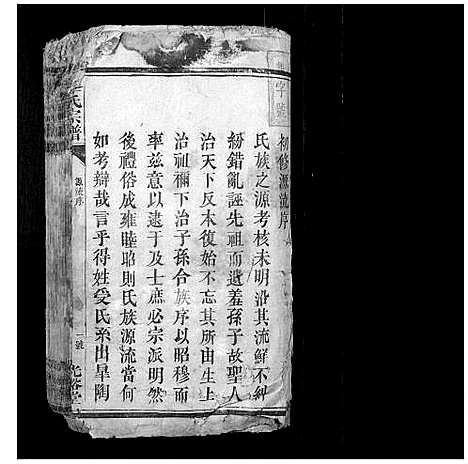 字號
初修源流序
氏族之源考核未明沿其流鮮不糾
紛錯亂誣先祖而遺羞孫子故聖人
治天下反本復始不忘其所由生上
治祖禰下治子孫合族序以昭穆而
率兹意以逮于及士庶必宗派明然
後禮俗成雍睦昭則氏族源流當何
如考辯哉言乎得姓受氏系出皐陶
氏宗譜
源流序
一號